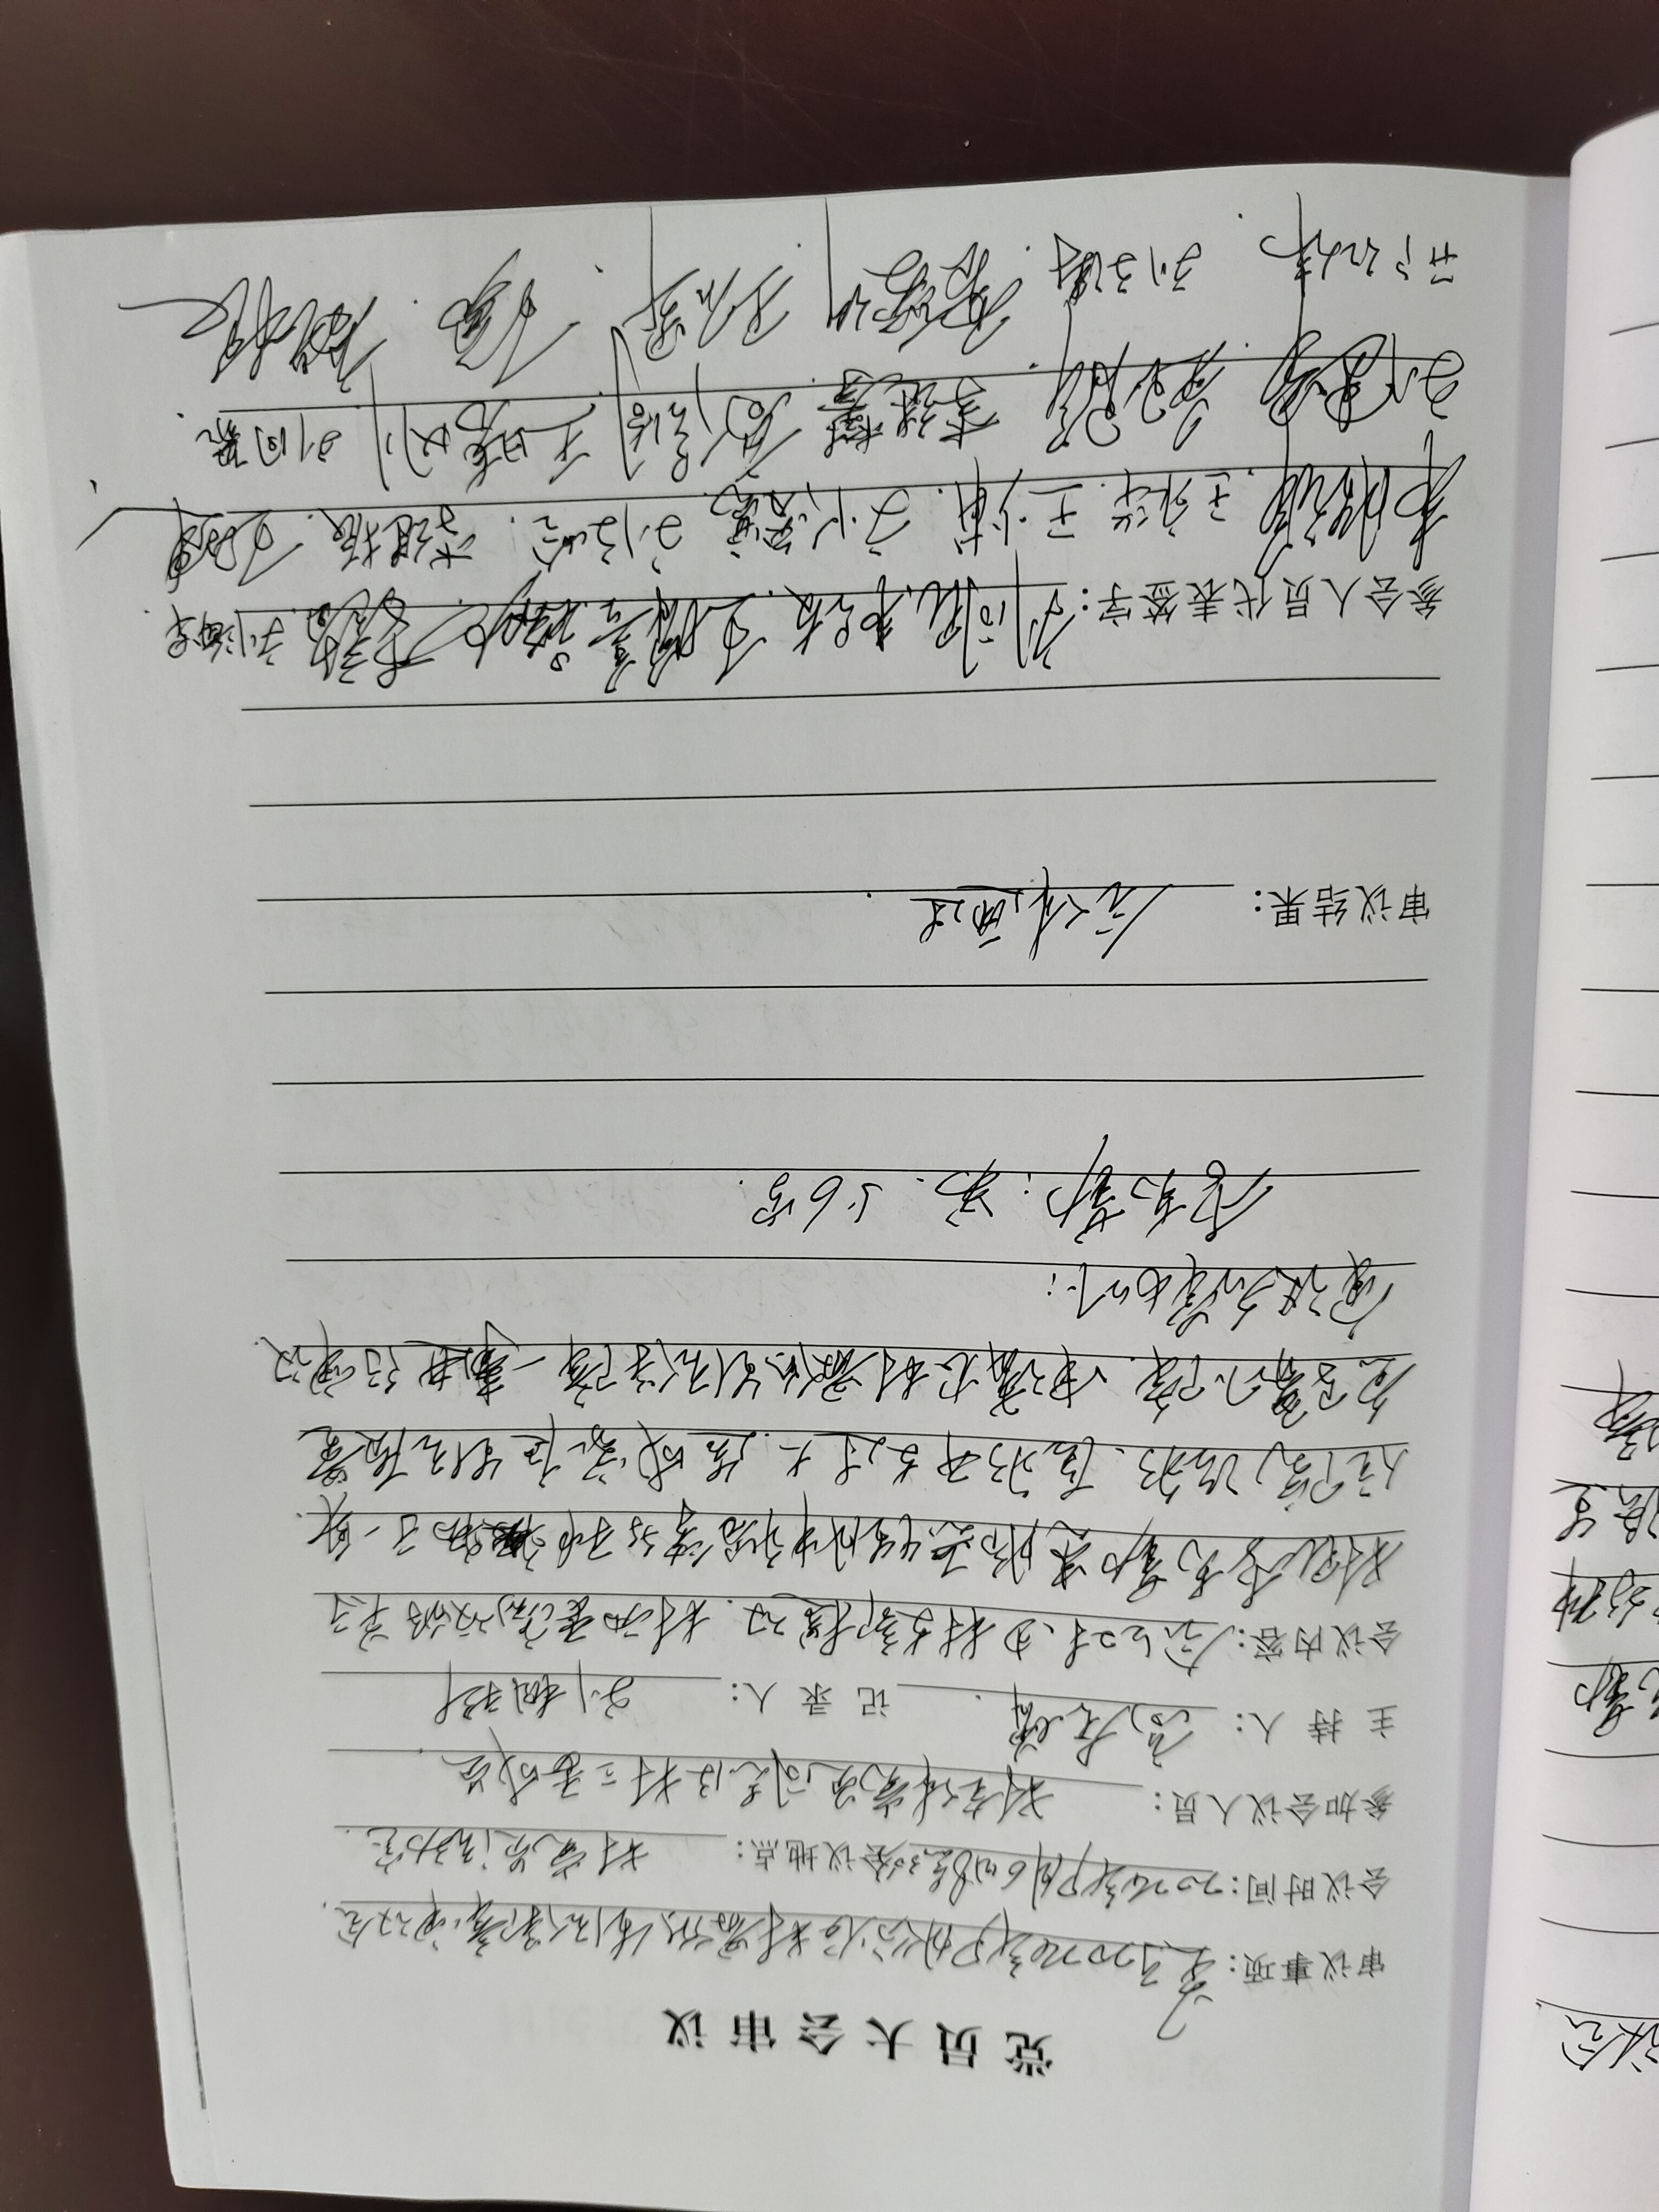 议会
克勤
多种
活生
障
党员大会审议
审议事项：关于2024年9月份农村最低生活保障审议会.
会议时间：2024年9月6日8点30分会议地点：村党员活动室.
参加会议人员：村全体党员同志及村三委成员.
主持人：高 增. 记录人：刘相科
会议内容：会上对、由村支部提议.村两委商议的关于
村民李克勤患肠恶性肿瘤等多种疾病于一身.
住院治疗、医疗开支过大.造成家庭生活质量
急骤下降.申请农村最低生活保障一事进行审议.
审议名单如下：
李克勤：男、56岁.
审议结果：全体通过.
参会人员代表签字：刘同 . 王 善. 李 .刘海军.
韦胜 .王永华.王少甫.刘俊亮.刘文岭.李继振.王 建
刘建军. 群.李继攀.高信周.王晓刚.刘同聚.
邢红伟.刘子涛.聂爱 .王石军、王勇. 根